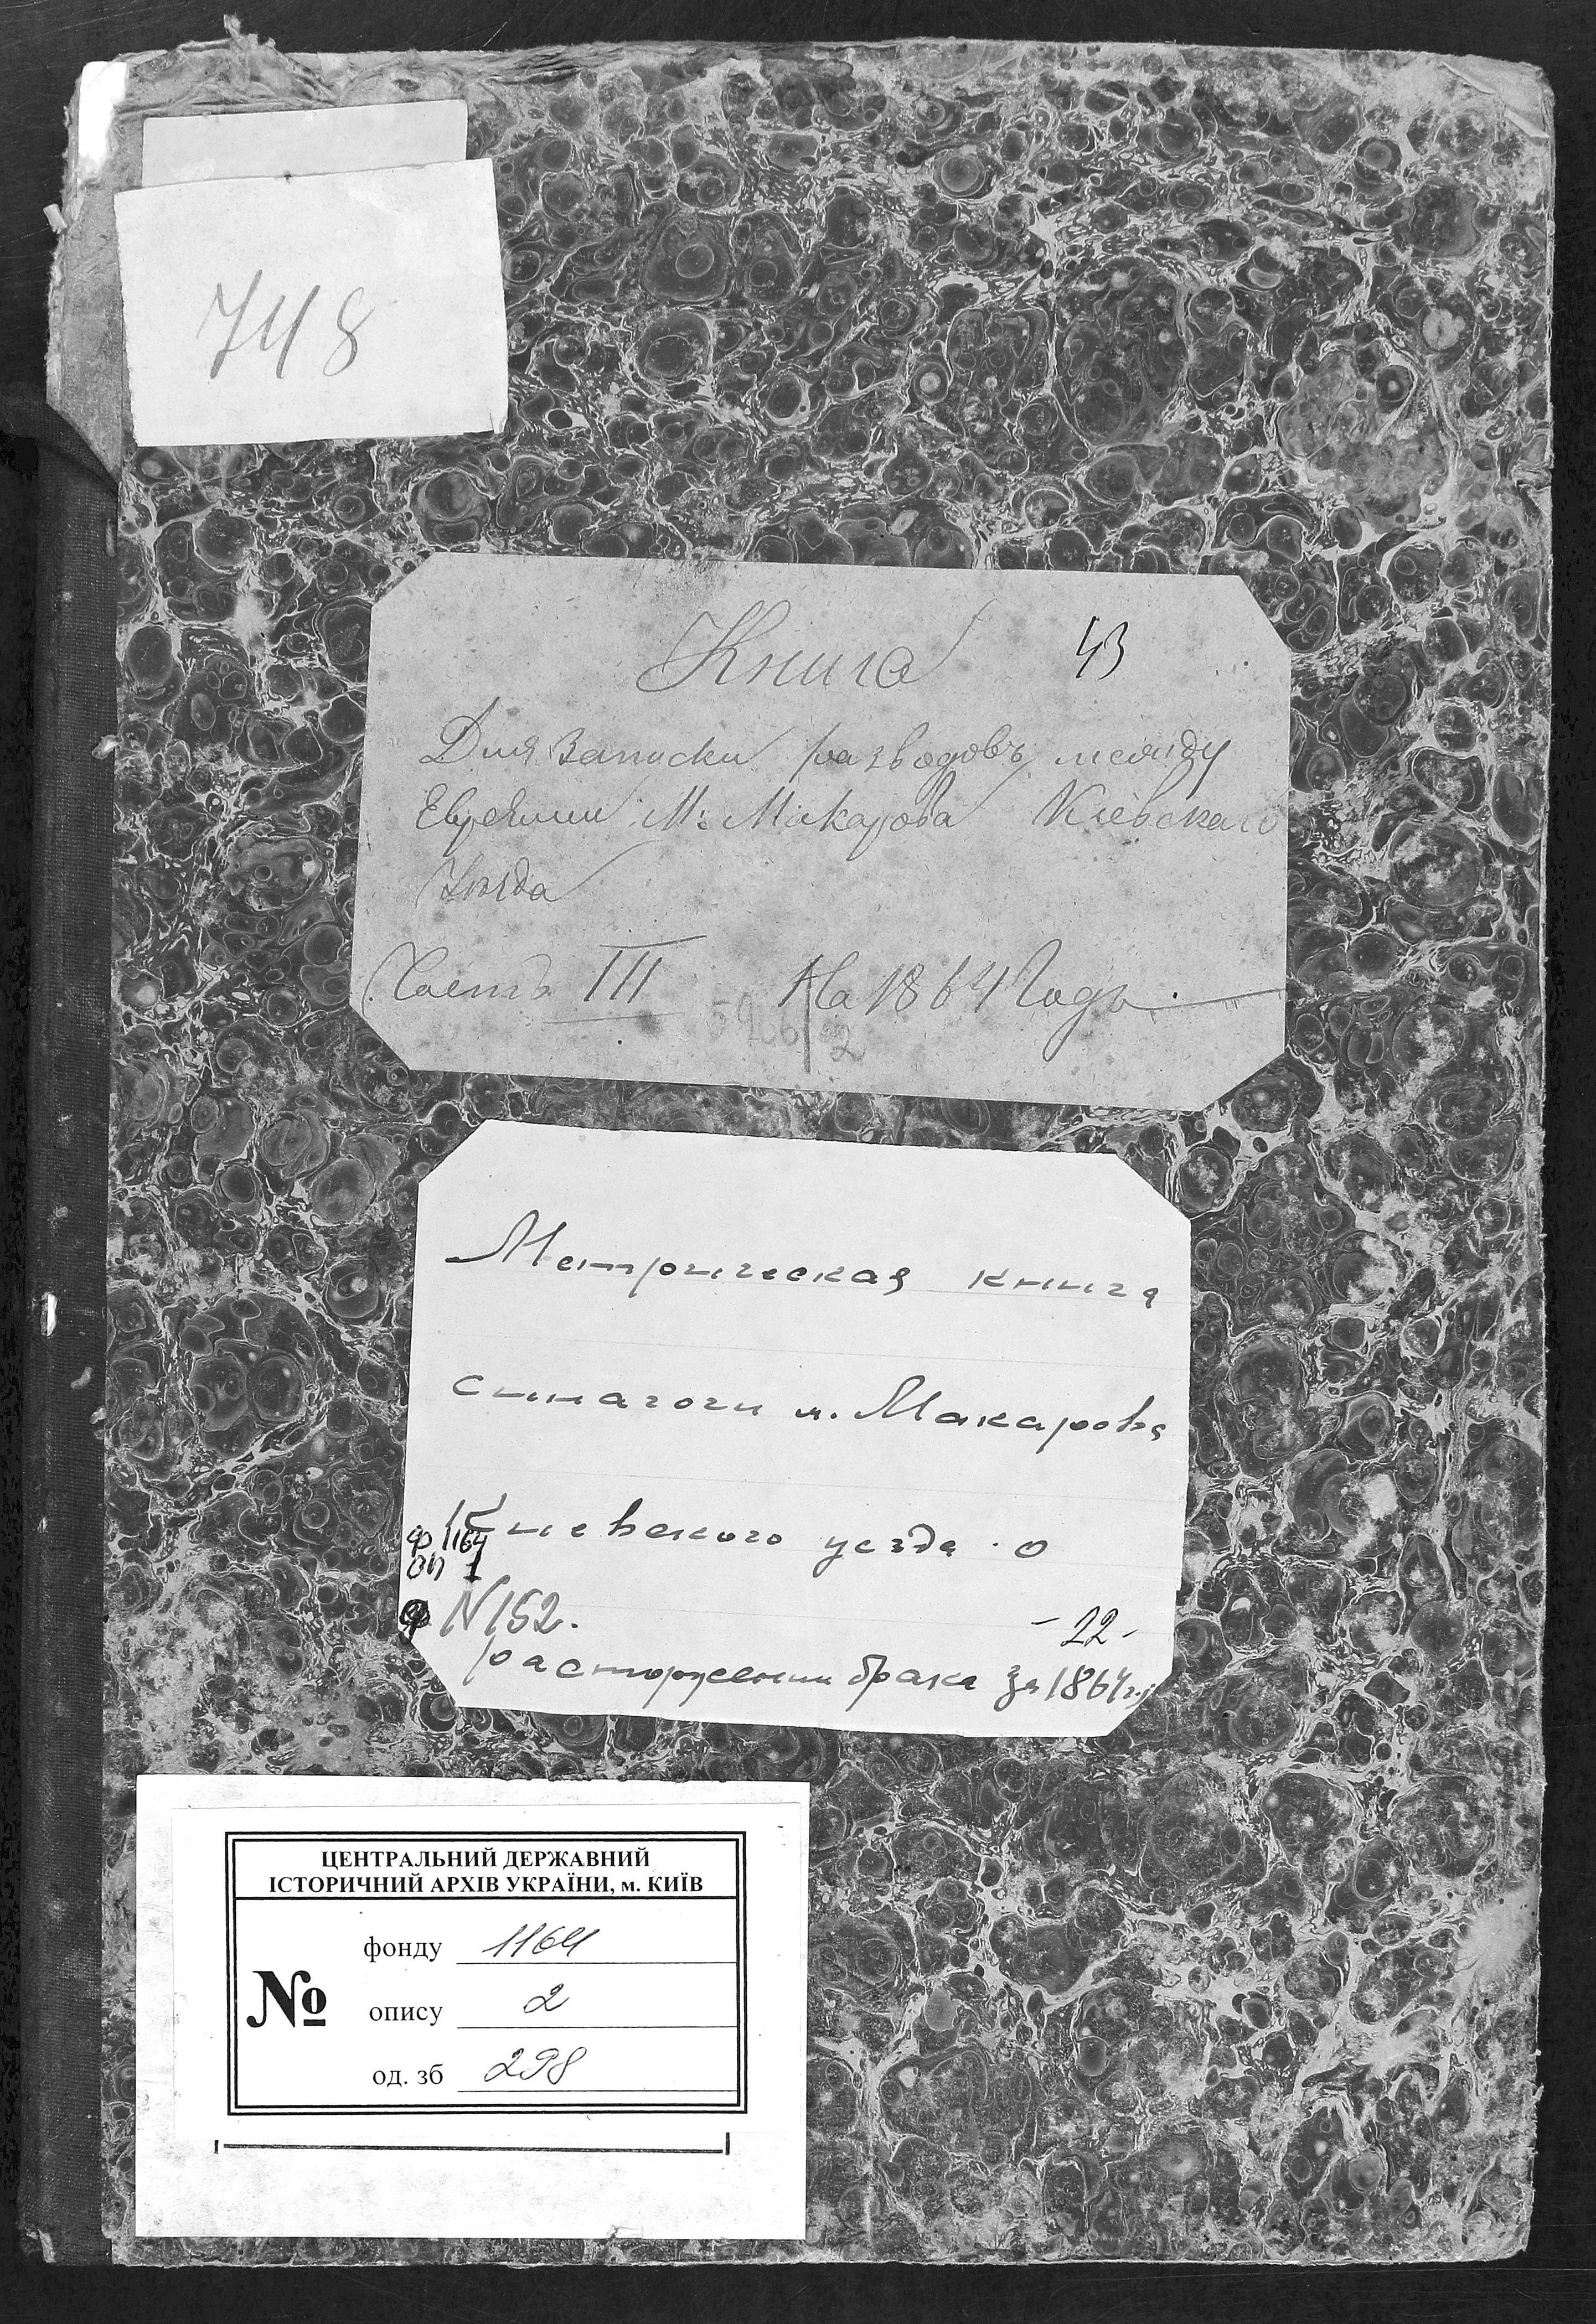 748
Книга 43
Для записки разводовъ между
Евреями М: Макарова Кіевскаго
Уезда
Часть III На 1864 Годъ.
Метрическая книга
синагоги м. Макарова
Киевского уезда о
ф 1164
оп 1
N 152. - 22 -
расторжении брака за 1864 г.
ЦЕНТРАЛЬНИЙ ДЕРЖАВНИЙ
ІСТОРИЧНИЙ АРХІВ УКРАЇНИ, м. КИЇВ
фонду 1164
№ опису 2
од. зб 298